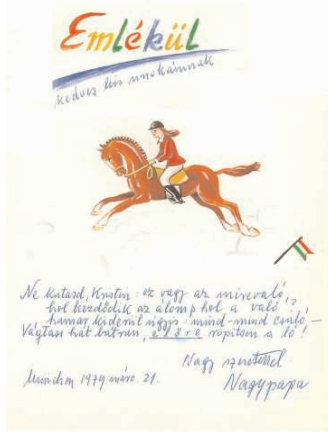 Emlékül
kedves kis unokámnak
Ne kutasd, Kristin: ez vagy az mirevaló,
hol kezdődik az álom, hol a való,
hamar kiderül úgyis: mind-mind csaló –
Vágtass hát bátran, előre röpítsen a ló!
Nagy szeretettel
München 1979 márc. 21.
Nagypapa